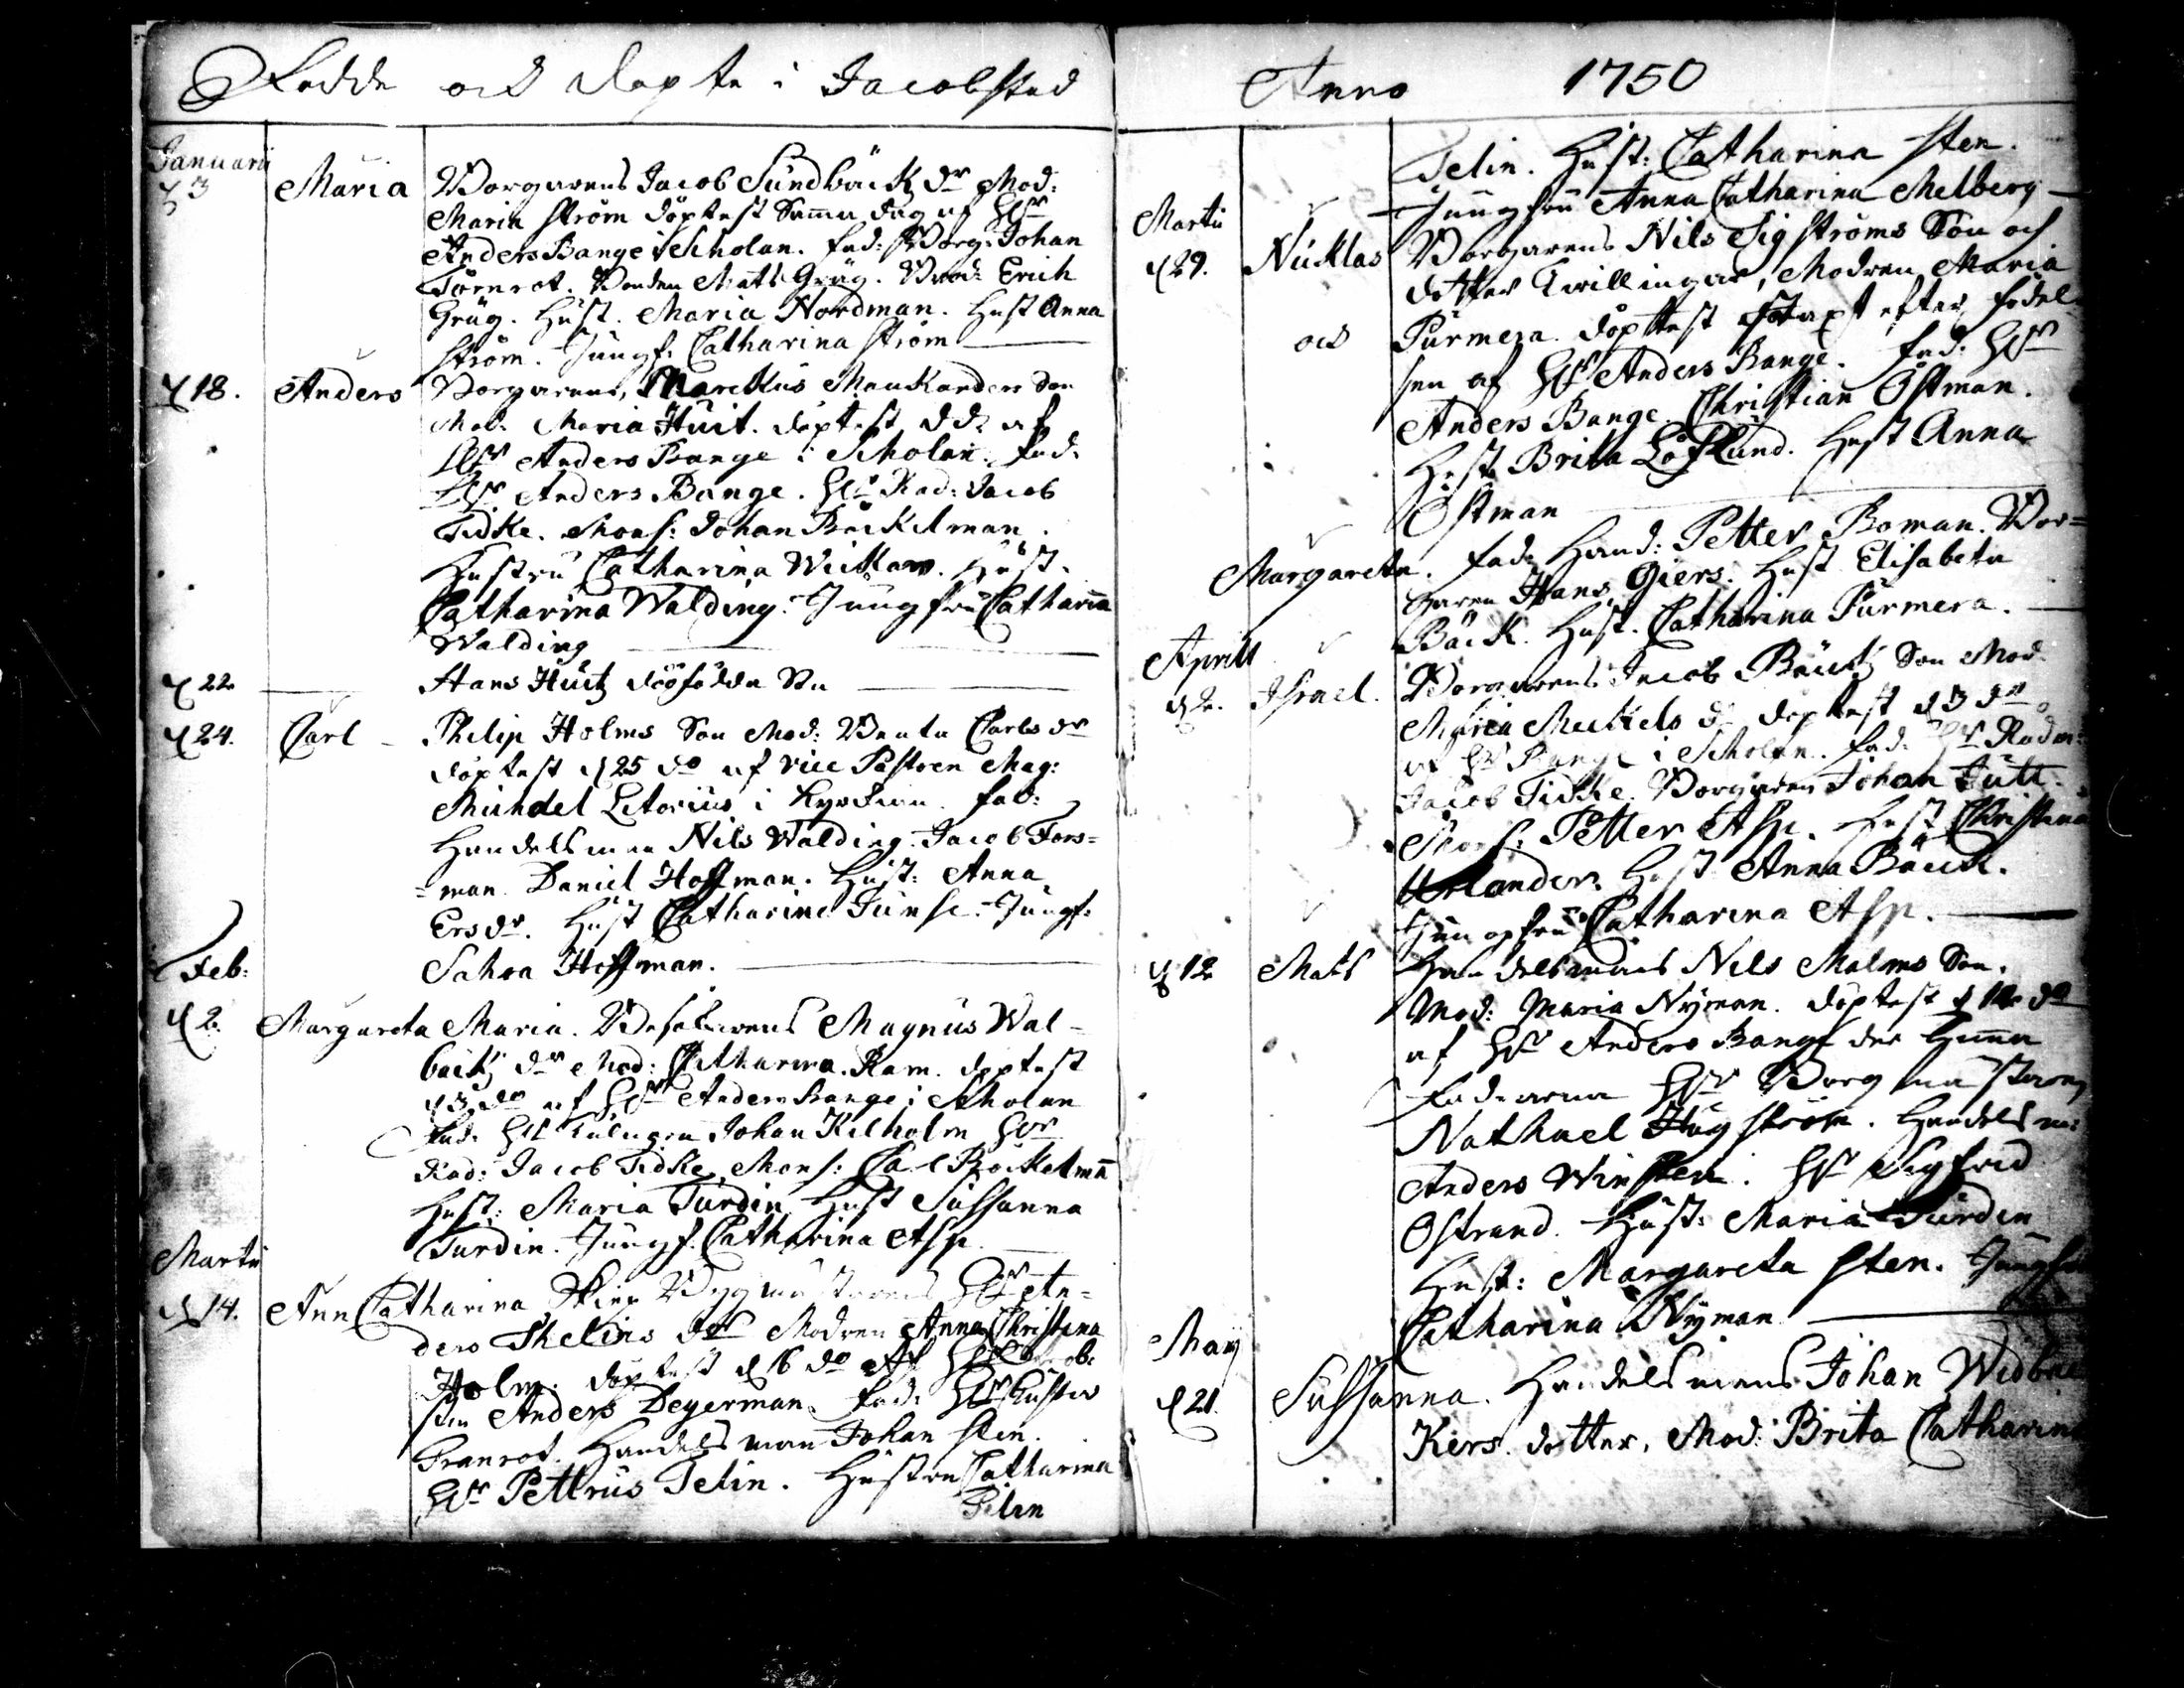 Födde och döpte i Jacobstad
Januarii
d 3 Maria Borgarens Jacob Sundbäck dr Mod:
Maria Ström döptest Samma dag af Hr
Anders Bange i Scholan. fad: Borg: Johan
Törnrot. Bonden Matts Gräg. Erich
Gräg. Hust. Maria Nordman. Hust Anna
Ström. Jungf. Catharina Ström
d 18. Anders Borgarens, Marckus Mankanders Son
Mod: Maria Huit. döptest af
Hr Anders Bange i Scholan. fad:
Hr Anders Bange. Hr Rad: Jacob
Tidke. Mons: Johan Böckelman.
Hustru Catharina Wickar. Hust.
Catharina Walding. Jungfru Catharina
Walding
d 22 Hans Huitz dödfödde
d 24. Carl Philip Holms Son Mod: Beata Carls dr
döptest d 25 do af vice Pastoren Mag:
Michael Litovius i Kyrckian. fad:
Handelsman Nils Walding. Jacob Fors=
=man. Daniel Hoffman. Hust: Anna
Ers dr. Hust Catharina Junsc. Jungf:
Sahra Hoffman.
Feb:
d 2. Margareta Maria. Magnus Wal-
bäck dr Mod: Catharina Ram. döptest
d 3 do af Hr Anders Bange i Scholan
fad: Hr Johan Kilholm Hr
Rad: Jacob Tidke, Mons: Carl Böckelman
Hust: Maria Turdin Hust Sussanna
Turdin. Jungf. Catharina Asp
Martii
d 14. Ann Catharina Skiep Byggmästarens Hr An=
ders Thelins dr Modren Anna Christina
Holm. döptest d 16 do Af
Anders Degerman. fad: Hr Gustav
Granrot. Handelsman Johan Sten.
Hr Pettrus Telin. Hustru Catharina
Telin
Anno 1750
Telin. Hust: Catharina Sten.
Jungfru Anna Catharina Melberg
Martii
d 29. Nicklas Borgarens Nils Sigströms Son och
dotter Twillingar, Modren Maria
och Purmera. döptest strapt efter födel=
sen af Hr Anders Bange. fad: Hr
Anders Bange. Christian Östman.
Hust: Brita Löflund. Hust Anna
Östman
Margareta. fad: Hand: Petter Boman. Bor=
garen Hans Giers. Hust Elisabeta
Bäck. Hust. Catharina Purmera.
Aprill
d 2. Israel. Borgarens Jacob Bäck Son Mod
Maria Mickels dr döptest d 3 do
af Hr Bange i Scholan. fad: Hr Radm:
Jacob Tidke. Borgaren Johan Jutt.
Mons: Petter Asp. Hust Christina
Urlander. Hust Anna Bäck.
Jungfru Catharina Asp.
d 12 Mats Handelsmans Nils Malms Son.
Mod: Maria Nyman. döptest d 12 do
af Hr Anders Bange der hemma
faddrarna Hr Borgmästaren
Nathael Hugström. Handelsm:
Anders Winsten. Hr Sigfrid
Ostrand. Hust: Maria Turdin
Hust: Margareta Sten. Jungfru
Catharina Nyman
Maij
d 21. Sussanna. Handelsmans Johan Widbäc
Kers dotter. Mod: Brita Catharina